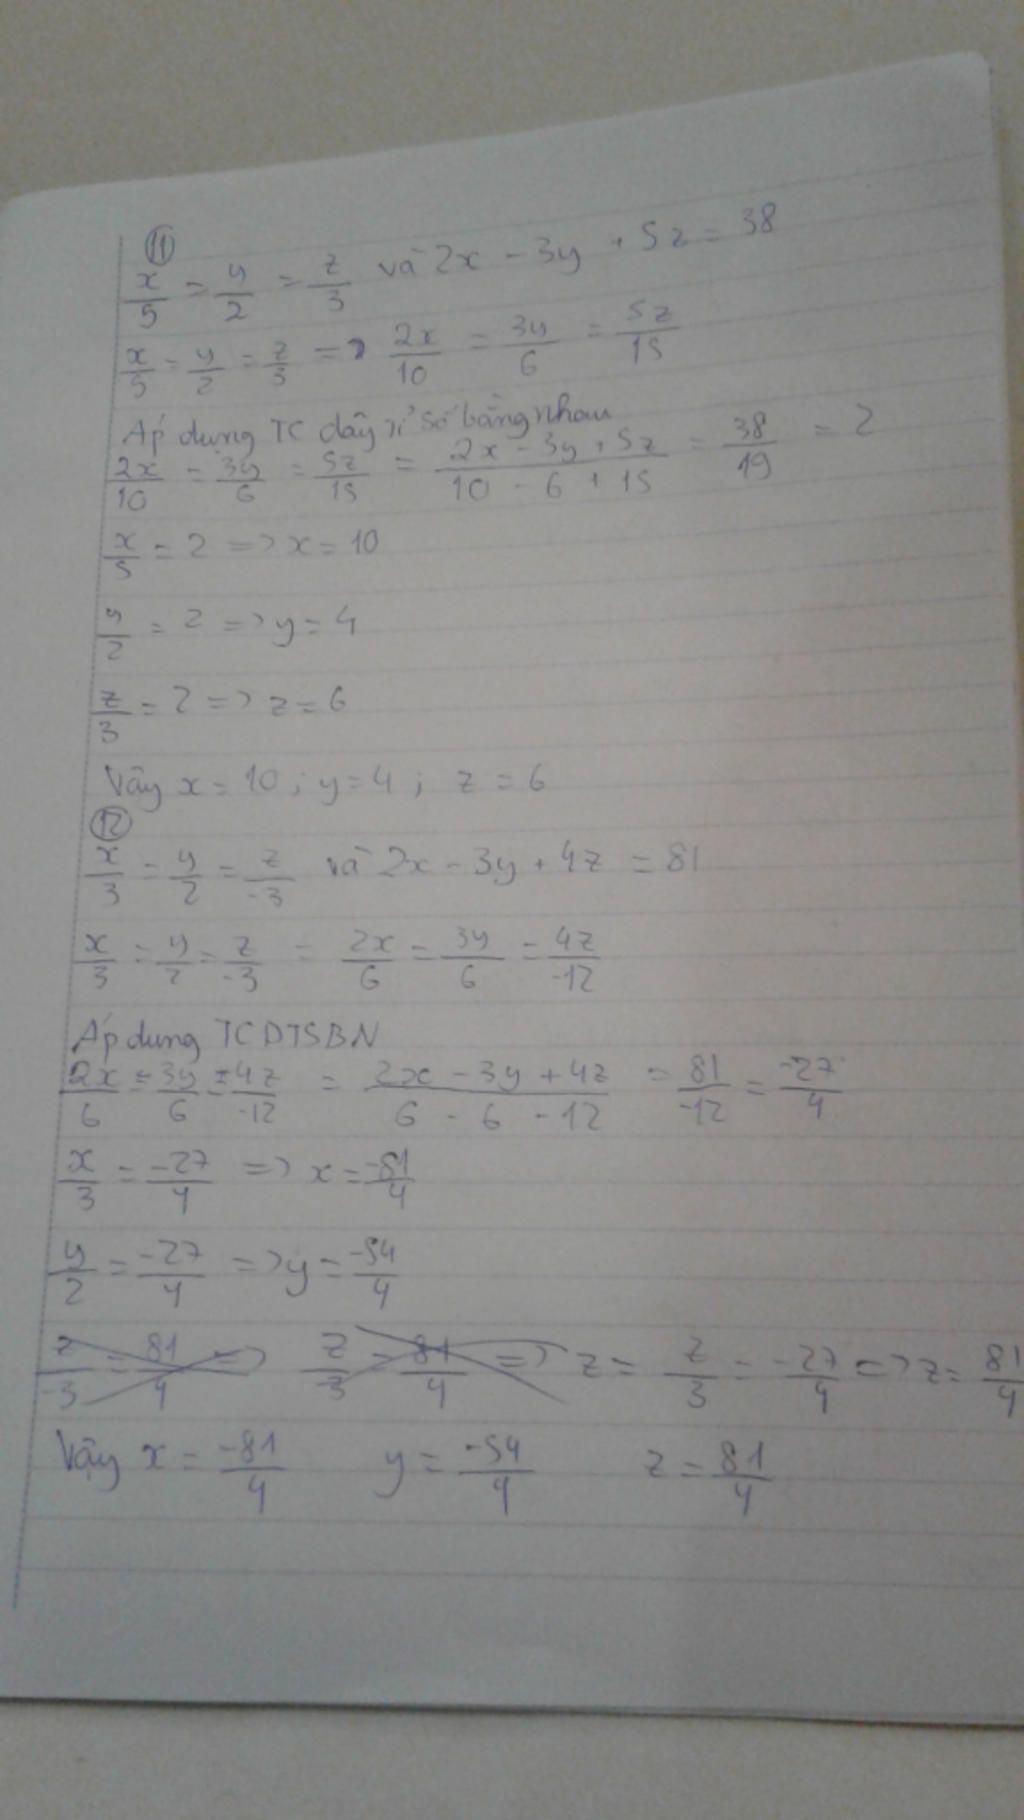 11
x/5 = y/2 = z/3 và 2x - 3y + 5z = 38
x/5 = y/2 = z/3 => 2x/10 = 3y/6 = 5z/15
Áp dụng TC dãy tỉ số bằng nhau
2x/10 = 3y/6 = 5z/15 = (2x - 3y + 5z)/(10 - 6 + 15) = 38/19 = 2
x/5 = 2 => x = 10
y/2 = 2 => y = 4
z/3 = 2 => z = 6
Vậy x = 10 ; y = 4 ; z = 6
12
x/3 = y/2 = z/-3 và 2x - 3y + 4z = 81
x/3 = y/2 = z/-3 = 2x/6 = 3y/6 = 4z/-12
Áp dụng TCDTSBN
2x/6 = 3y/6 = 4z/-12 = (2x - 3y + 4z)/(6 - 6 - 12) = 81/-12 = -27/4
x/3 = -27/4 => x = -81/4
y/2 = -27/4 => y = -54/4
z/-3 = 81/4 => z/-3 = 81/4 => z = z/3 = -27/4 => z = 81/4
Vậy x = -81/4 y = -54/4 z = 81/4